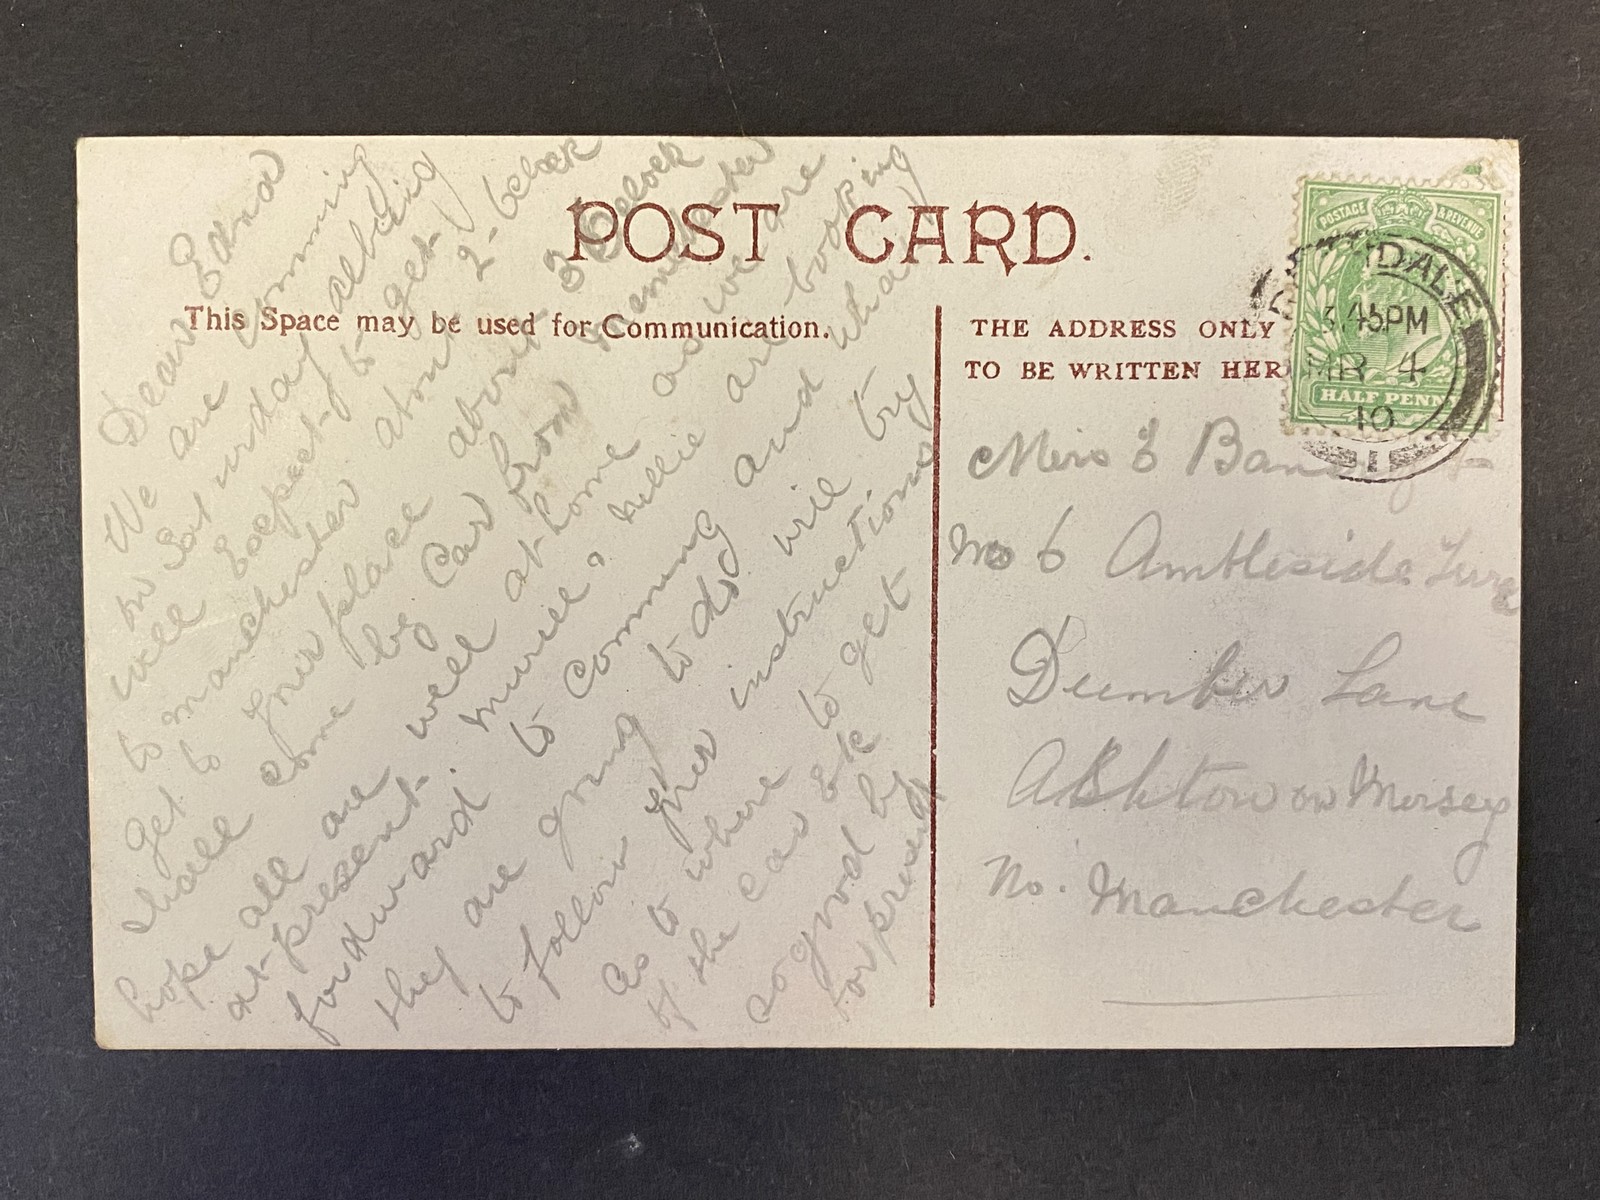 POST CARD.
This Space may be used for Communication.
THE ADDRESS ONLY
TO BE WRITTEN HER
POSTAGE & REVENUE
HALF PENN
DALE
3.45PM
MR 4
10
1
Dear Edna
We are comming
on Saturday all being
well Expect to get
to manchester about 2-oclock
get to your place about 3 oclock
shall come by Car from manchester
hope all are well at home as we are
at-present. muriel & nellie are looking
forward to comming and what
they are going to do will try
to follow your instructions
as to where to get
of the car &k
so good by
for present
Miss E
No 6 Ambleside
Lane
Ashton on Mersey
Nr. Manchester